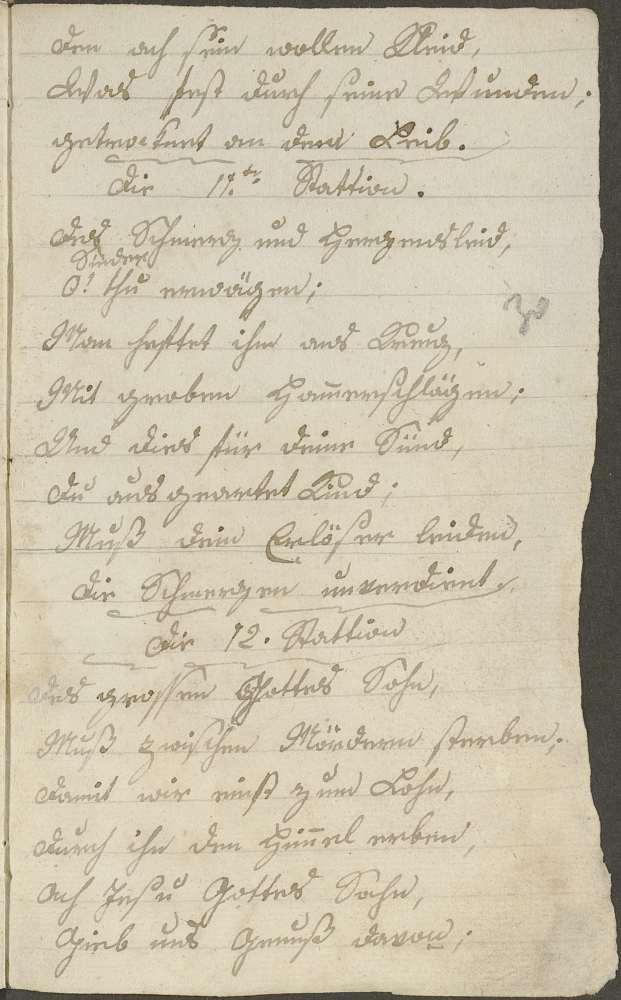 den ach sein wollen Kleid,
Was fest durch seine Wunden;
getrocknet an dem Leib.
Die 11.te Stattion.
Das Schmerz und Herzensleid,
Sünder
O! thu erwägen;
Man heftet ihn ans Kreuz,
Mit groben Ham̄erschlägen;
Und dies für deine Sünd,
Du ausgeartet Kind;
Muß dein Erlöser leiden,
die Schmerzen unverdient.
Die 12. Stattion
Des grossen Gottes Sohn,
Muß zwischen Mördern sterben;
damit wir einst zum Lohn,
durch ihn den Him̄el erben,
Ach Jesu Gottes Sohn,
Gieb uns Genuß davon;